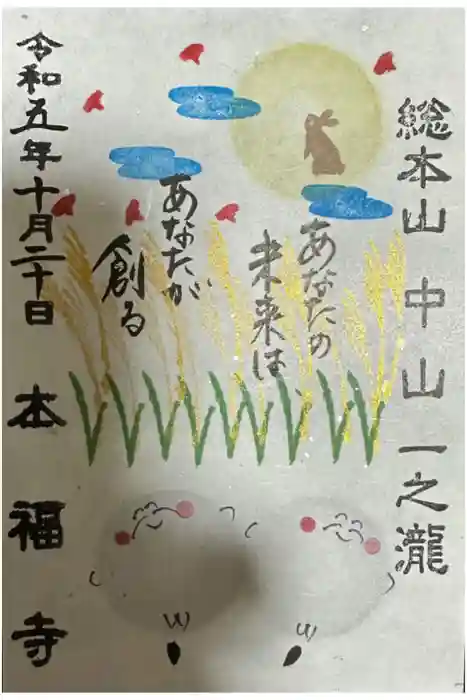 総本山 中山 一之瀧
あなたの
未来は、
あなたが
創る
令和五年十月二十日 本福寺